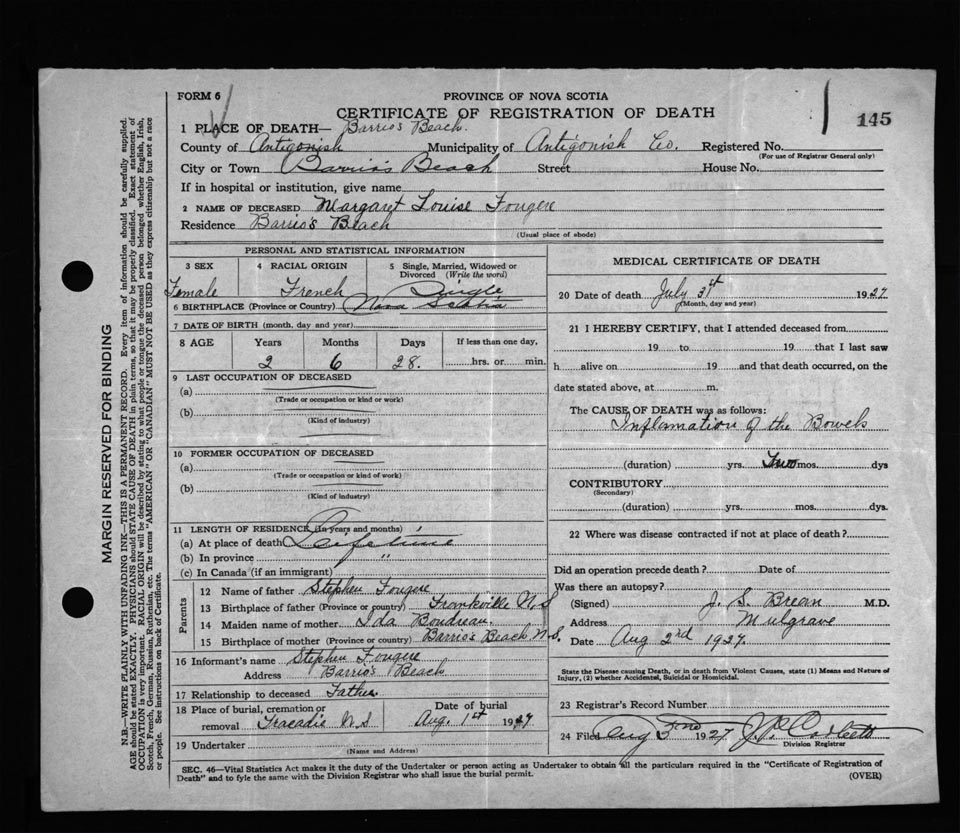 FORM 6
PROVINCE OF NOVA SCOTIA
CERTIFICATE OF REGISTRATION OF DEATH
145
1 PLACE OF DEATH— Barrio's Beach.
County of Antigonish Municipality of Antigonish Co. Registered No.
(For use of Registrar General only)
City or Town Barrio's Beach Street House No.
If in hospital or institution, give name
2 NAME OF DECEASED Margaret Louise Fougere
Residence Barrio's Beach
(Usual place of abode)
PERSONAL AND STATISTICAL INFORMATION
3 SEX 4 RACIAL ORIGIN 5 Single, Married, Widowed or Divorced (Write the word)
Female French Single
6 BIRTHPLACE (Province or Country) Nova Scotia
7 DATE OF BIRTH (month, day and year)
8 AGE Years Months Days If less than one day,
2 6 28. hrs. or min.
9 LAST OCCUPATION OF DECEASED
(a)
(Trade or occupation or kind of work)
(b)
(Kind of industry)
10 FORMER OCCUPATION OF DECEASED
(a)
(Trade or occupation or kind of work)
(b)
(Kind of industry)
11 LENGTH OF RESIDENCE (In years and months)
(a) At place of death Lifetime
(b) In province "
(c) In Canada (if an immigrant)
Parents
12 Name of father Stephen Fougere
13 Birthplace of father (Province or country) Frankville N.S
14 Maiden name of mother Ida Boudreau.
15 Birthplace of mother (Province or country) Barrio's Beach N.S.
16 Informant's name Stephen Fougere
Address Barrio's Beach
17 Relationship to deceased Father
18 Place of burial, cremation or removal Tracadie N.S
Date of burial
Aug. 1st 1927
19 Undertaker
(Name and Address)
MEDICAL CERTIFICATE OF DEATH
20 Date of death July 31st 1927
(Month, day and year)
21 I HEREBY CERTIFY, that I attended deceased from
19 to 19 that I last saw
h alive on 19 and that death occurred, on the
date stated above, at m.
The CAUSE OF DEATH was as follows:
Inflamation of the Bowels
(duration) yrs. Two mos. dys
CONTRIBUTORY
(Secondary)
(duration) yrs. mos. dys.
22 Where was disease contracted if not at place of death?
Did an operation precede death? Date of
Was there an autopsy?
(Signed) J. S. Brean M.D.
Address Mulgrave
Date Aug 2nd 1927
State the Disease causing Death, or in death from Violent Causes, state (1) Means and Nature of
Injury, (2) whether Accidental, Suicidal or Homicidal.
23 Registrar's Record Number
24 Filed Aug 1927 J.P. Corbett
Division Registrar
SEC. 46—Vital Statistics Act makes it the duty of the Undertaker or person acting as Undertaker to obtain all the particulars required in the "Certificate of Registration of
Death" and to fyle the same with the Division Registrar who shall issue the burial permit.
(OVER)
MARGIN RESERVED FOR BINDING
N.B.—WRITE PLAINLY WITH UNFADING INK—THIS IS A PERMANENT RECORD. Every item of information should be carefully supplied.
AGE should be stated EXACTLY. PHYSICIANS should STATE CAUSE OF DEATH in plain terms, so that it may be properly classified. Exact statement of
OCCUPATION is very important. RACIAL ORIGIN will be described by stating to what people or tongue the deceased person belonged whether English, Irish,
Scotch, French, German, Russian, Ruthenian, etc. The terms "AMERICAN" OR "CANADIAN" MUST NOT BE USED as they express citizenship but not a race
or people. See instructions on back of Certificate.